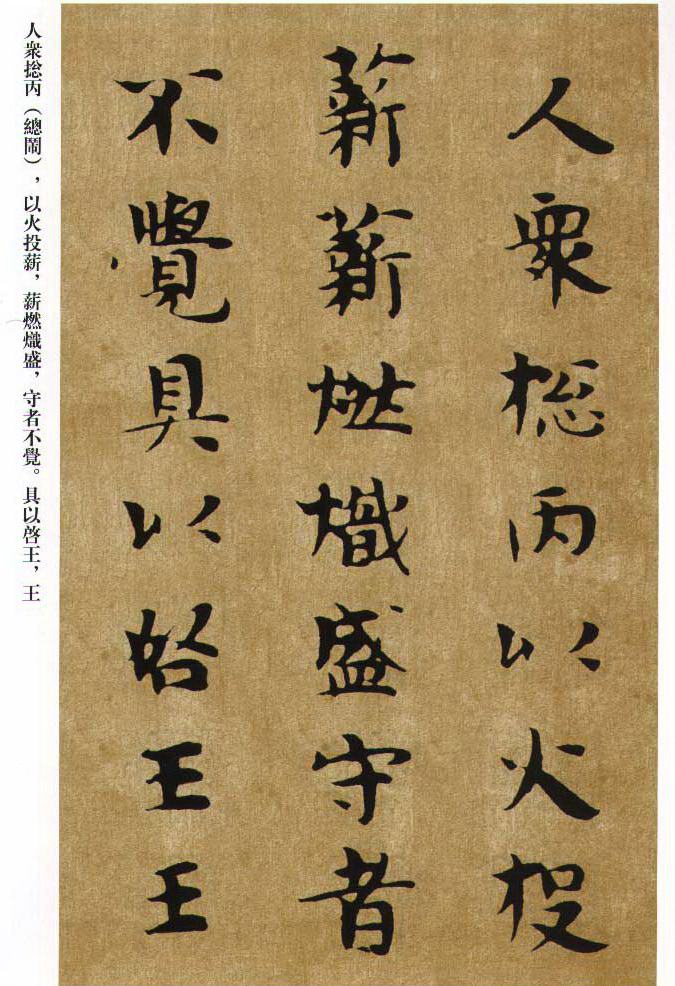 人衆捴丙以火投
薪薪燃熾盛守者
不覺具以啓王王
人衆捴丙（總鬧），以火投薪，薪燃熾盛，守者不覺。具以啓王，王